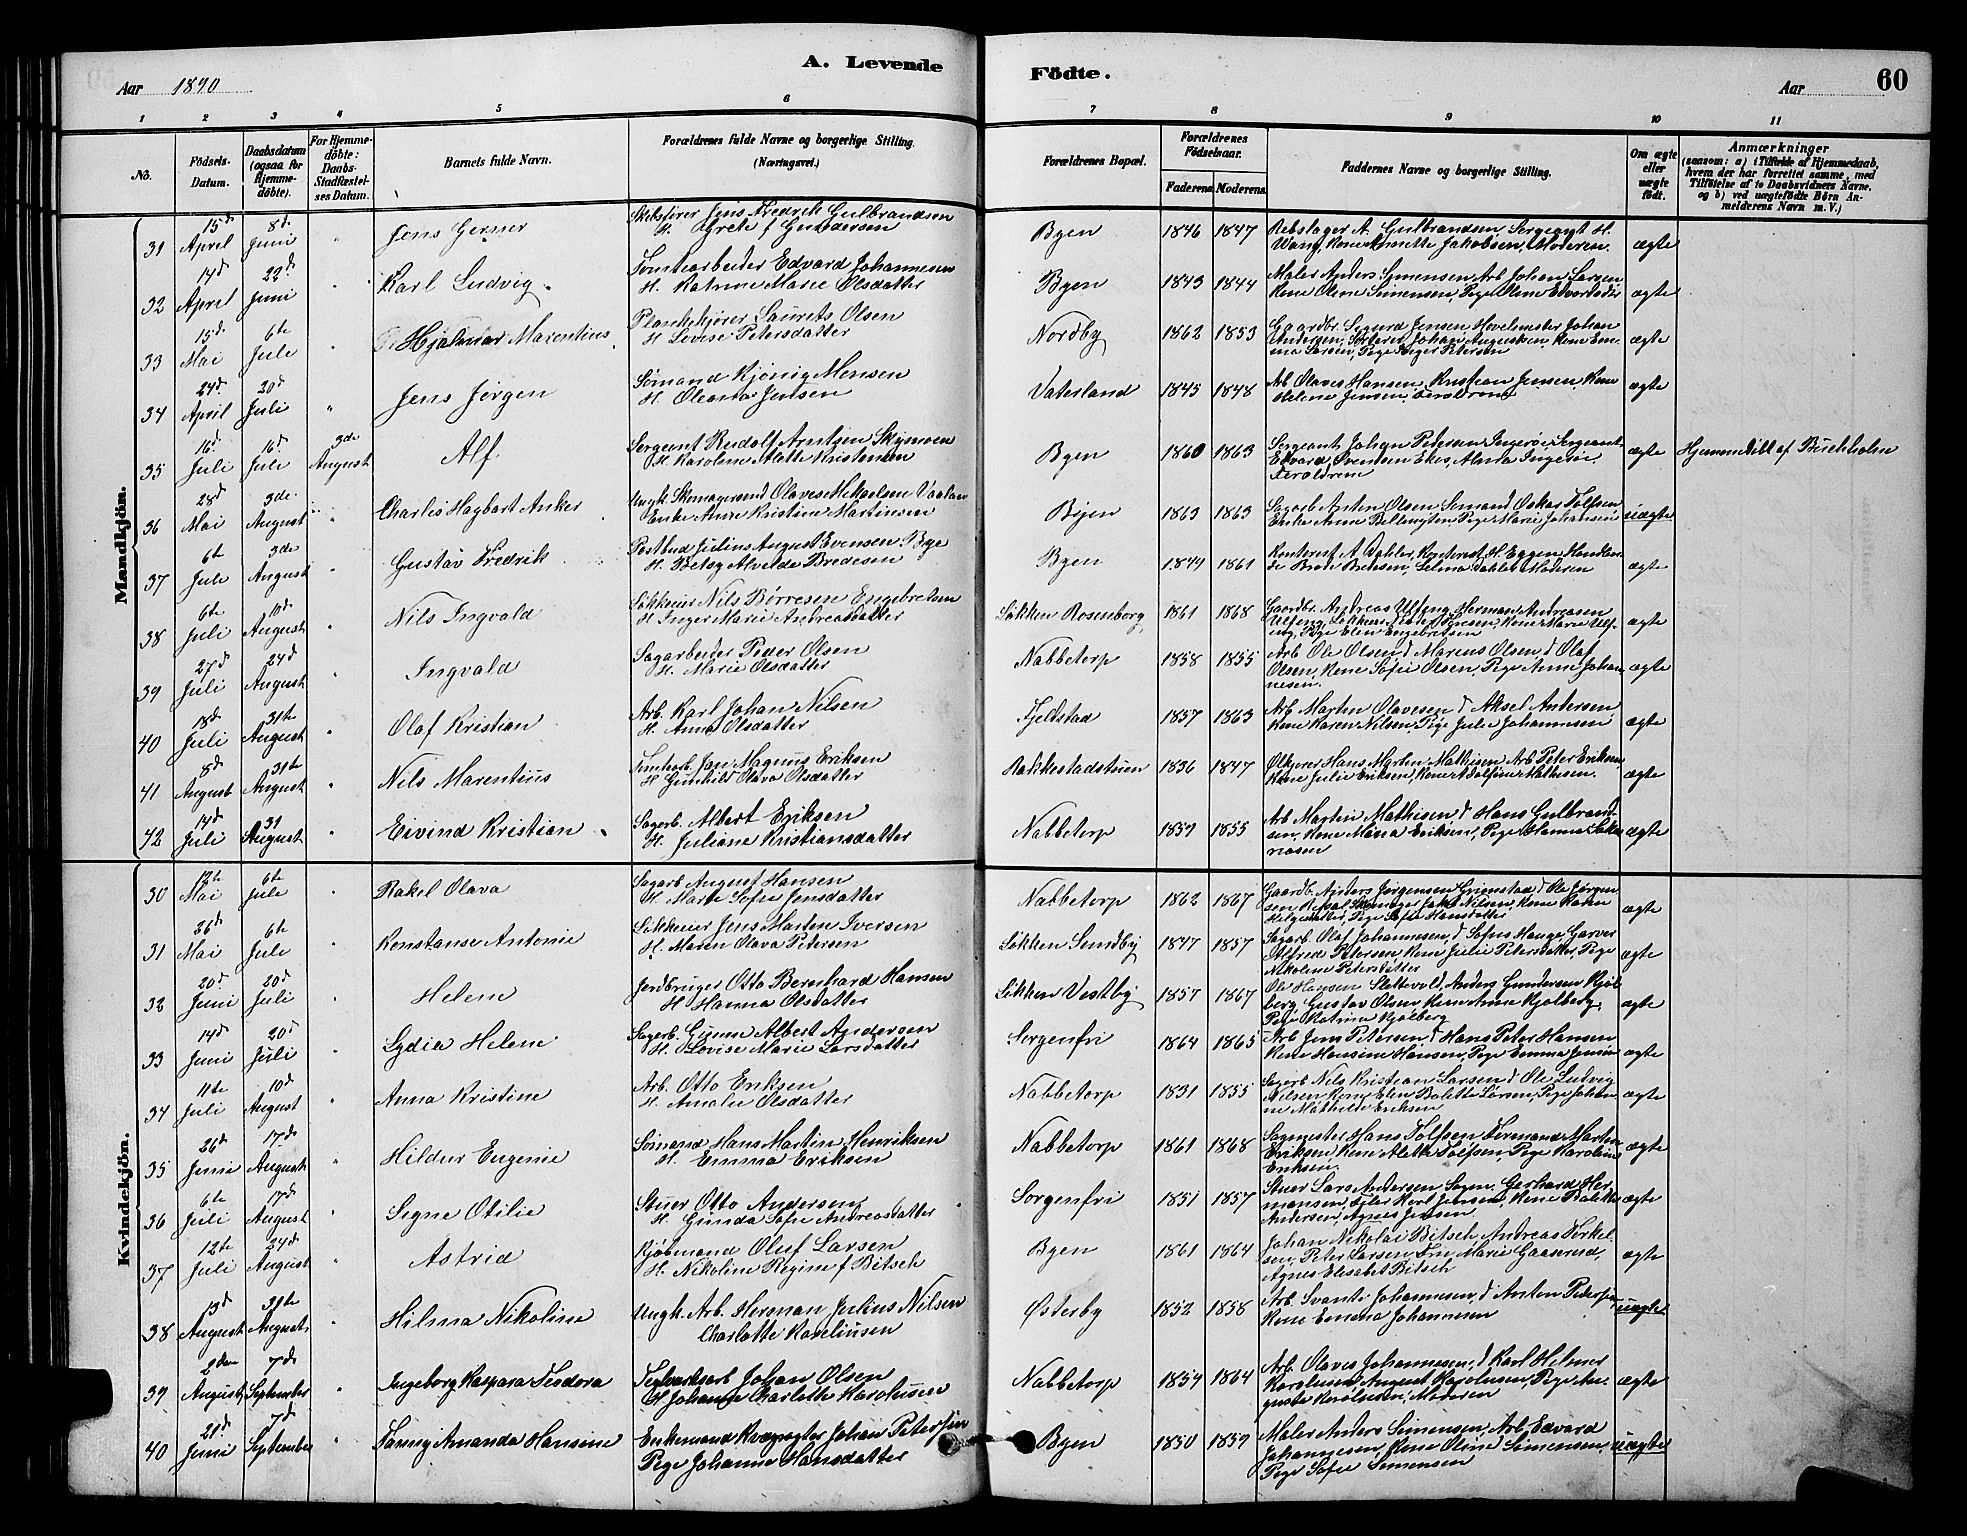 A. Levende Födte. 60
Aar 1890 Aar
1 2 3 4 5 6 7 8 9 10 11
No. Födsels-Datum. Daabsdatum (ogsaa for Hjemme-döbte). For Hjemme-döbte: Daabs-Stadfæstel-ses Datum. Barnets fulde Navn. Forældrenes fulde Navne og borgerlige Stilling. (Næringsvei.) Forældrenes Bopæl. Forældrenes Födselsaar. Faderens. Moderens. Faddernes Navne og borgerlige Stilling. Om ægte eller uægte födt. Anmærkninger (saasom: a) i Tilfælde af Hjemmedaab, hvem der har forrettet samme, med Tilföielse af to Daabsvidners Navne, og b) ved uægtefödte Börn An-melderens Navn m. V.)
Mandkjön.
31 15d April 8d Juni " Jens Germer Skibsfører Jens Fredrik Gulbrandsen H. Grete f Gundersen Byen 1846 1847 Rebslager A. Gulbrandsen Jakobsen, Moderen. ægte
32 14d April 22d Juni " Karl Ludvig Tomtearbeider Edvard Johannesen H. Katrine Marie Olsdatter Byen 1843 1844 Maler Anders Simensen, Arb. Johan Larsen Kone Oline Simensen, Pige Oline Edvardsdtr ægte
33 15d Mai 6te Juli " Hjalmar Marentius Plankekjører Laurits Olsen H. Lovise Petersdatter Nordby 1862 1853 Gaardbr. Sigurd Jensen Høvelmester Johan Andersen, Sorterer Johan Augustsen, Kone Emma Larsen, Pige Inger Petersen ægte
34 24d April 20d Juli " Jens Jørgen Sømand Kjønig Monsen H. Oleana Jensen Vaterland 1845 1848 Arb Olaves Hansen, Kristian Jensen Kone Helene Jensen, Forældrene ægte
35 16d Juli 16d Juli 3de August Alf Sergeant Rudolf Arntzen H. Karoline Alette Kristensen Byen 1860 1863 Sergeant Johan Petersen Ingerøe, Sergeant Edvard Svensen Ekes, Alma Ingerøe Forældrene ægte Hjemmedøbt af Buchholm
36 28d Mai 3de August " Charlis Hagbart Anker Ungk. Skomagersvend Olaves Mikaelsen Enke Anne Kristine Martinsen Byen 1863 1863 Sagarb. Anten Olsen Sømand Oskar Tolfsen Enke Anne Pige Marie Johansen uægte
37 6te Juli 3de August " Gustav Fredrik Postbud Julius August Evensen Bye H. Betsy Alvilde Bredesen Byen 1849 1861 Kontorist A. Dahler, Kontorist H. Eggen, Bredesen, Selma Dahler, Moderen ægte
38 6te Juli 10d August " Nils Ingvald Løkkeeier Nils Børresen Engebretsen H. Inger Marie Andreasdatter Løkken Rosenborg 1861 1868 Gaardbr. Andreas Ulfeng, Herman Andreasen Ulfeng, Løkkeeier Jensen, Kone Marie Ulfeng, Pige Elen Engebretsen ægte
39 27d Juli 24d August " Ingvald Sagarbeider Peder Olsen H. Marie Olsdatter Nabbetorp 1858 1855 Arb Ole Olsen, d Marius Olsen, d Olaf Olsen, Kone Sofie Olsen, Pige Anne Johannesen. ægte
40 18d Juli 31te August " Olaf Kristian Arb. Karl Johan Nilsen H. Anna Olsdatter Fjeldstad 1857 1863 Arb Martin Olavesen d Aksel Andersen Kone Karen Nilsen, Pige Julie Johannesen ægte
41 8d August 31te August " Nils Marentius Tomtearb. Jan Magnus Eriksen H Gunhild Olava Olsdatter Rakkestadstuen 1836 1847 Ølkjører Hans Martin Mathisen Arb Peter Eriksen Kone Julie Eriksen, Kone Adolfine Mathisen. ægte
42 14d Juli 31 August " Eivind Kristian Sagarb. Albert Eriksen H. Juliane Kristiansdatter Nabbetorp 1859 1855 Arb Martin Mathisen d Hans Gulbrandsen, Kone Maria Eriksen, Pige Hanna Sakariasen ægte
Kvindekjön.
30 12te Mai 6te Juli " Rakel Olava Sagarb August Hansen H. Marte Sofie Jensdatter Nabbetorp 1862 1867 Gaardb. Anders Jørgensen Grimstad d Ole Jørgensen Skomager Jakob Nilsen, Kone Karen Helgesdatter, Pige Sofie Hansdatter ægte
31 26d Mai 6te Juli " Konstanse Antonie Løkkeeier Jens Martin Iversen H. Maren Olava Petersen Løkken Sundby 1847 1857 Sagarb. Olaf Johannesen, d Sofus Hauge Garver Alfred Petersen Kone Julie Petersdatter, Pige Nikoline Petersdatter ægte
32 20d Juni 20d Juli " Helene Jordbruger Otto Bernhard Hansen H Hanna Olsdatter Løkken Vestby 1857 1867 Ole Hansen Slettevold, Anders Gundersen Kjølberg Gustav Olsen Kone Anne Kjølberg, Pige Katrine Kjølberg ægte
33 14d Juni 20d Juli " Lydia Helene Sagarb. Gunne Albert Andersen H. Lovise Marie Larsdatter Sorgenfri 1864 1865 Arb Jens Petersen, d Hans Peter Hansen Kone Hansine Hansen, Pige Emma Jensen ægte
34 11te Juli 10d August " Anna Kristine Arb. Otto Eriksen H. Amalie Olsdatter Nabbetorp 1831 1855 Sagarb Nils Kristian Larsen d Ole Ludvig Nilsen Kone Elen Bolette Larsen, Pige Johanne Mathilde Eriksen ægte
35 26d Juni 17d August " Hildur Eugenie Sømand Hans Martin Henriksen H. Emma Eriksen Nabbetorp 1861 1868 Sagmester Hans Tolfsen Formand Martin Eriksen Kone Alette Tolfsen, Pige Karoline Eriksen. ægte
36 6te Juli 17d August " Signe Otilie Stuer Otto Andersen H. Gunda Sofie Andreasdatter Sorgenfri 1851 1857 Stuer Lars Andersen Gerhard Hermansen, Karl Jensen, Kone Bolette Andersen, Agnes Jensen ægte
37 12te Juli 24d August " Astrid Kjøbmand Oluf Larsen H. Nikoline Regine f Bitsch Byen 1861 1864 Johan Nikolai Bitsch Andreas Torkelsen, Peter Larsen Fru Marie Gaaserud, Agnes Elisabet Bitsch ægte
38 13d August 31te August " Hilma Nikoline Ungk. Arb. Herman Julius Nilsen Charlotte Karelinsen Østerby 1852 1858 Arb. Svante Johannesen, d Anton Petersen Kone Emma Johannesen uægte
39 2den August 7d September " Ingeborg Kaspara Teodora Teglværksarb Johan Olsen H Johanne Charlotte Karolusen Nabbetorp 1854 1864 Arb. Olaves Johannesen, d Karl Helmer Karolusen, August Karolusen, Pige Auguste Karolusen, Moderen ægte
40 21d Juni 7d September " Fanny Amanda Hansine Enkemand Kvægrøgter Johan Petersen Pige Johanne Hansdatter Byen 1850 1859 Maler Anders Simensen, Arb. Edvard Johannesen, Kone Oline Simensen, Pige Sofie Simensen uægte